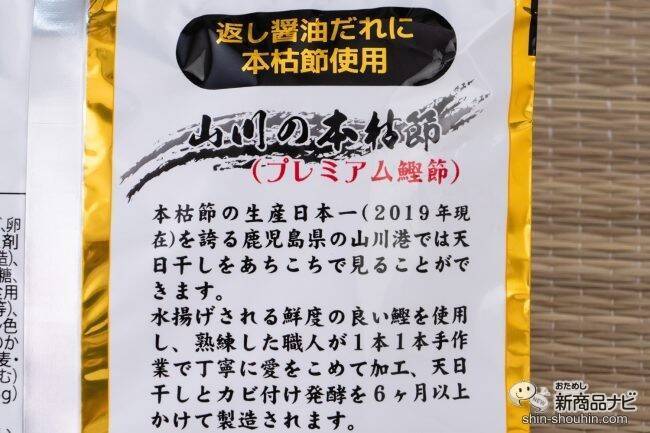 返し醤油だれに
本枯節使用
山川の本枯節
(プレミアム鰹節)
本枯節の生産日本一(2019年現
在)を誇る鹿児島県の山川港では天
日干しをあちこちで見ることがで
きます。
水揚げされる鮮度の良い鰹を使用
し、熟練した職人が1本1本手作
業で丁寧に愛をこめて加工、天日
干しとカビ付け発酵を6ヶ月以上
かけて製造されます。
、卵
剤
造)、
糖、
全用
等)、
色
のか
麦・
む)
g)
おためし
新商品ナビ
shin-shouhin.com